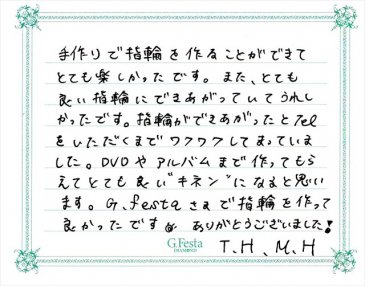 手作りで指輪を作ることができて
とても楽しかったです。また、とても
良い指輪にできあがっていてうれし
かったです。指輪ができあがったとTel
をいただくまでワクワクしてまっていま
した。DVDやアルバムまで作ってもら
えてとても良い"キネン"になると思い
ます。G.festaさまで指輪を作って
良かったです。ありがとうございました!
G.Festa
DIAMOND
T.H, M.H